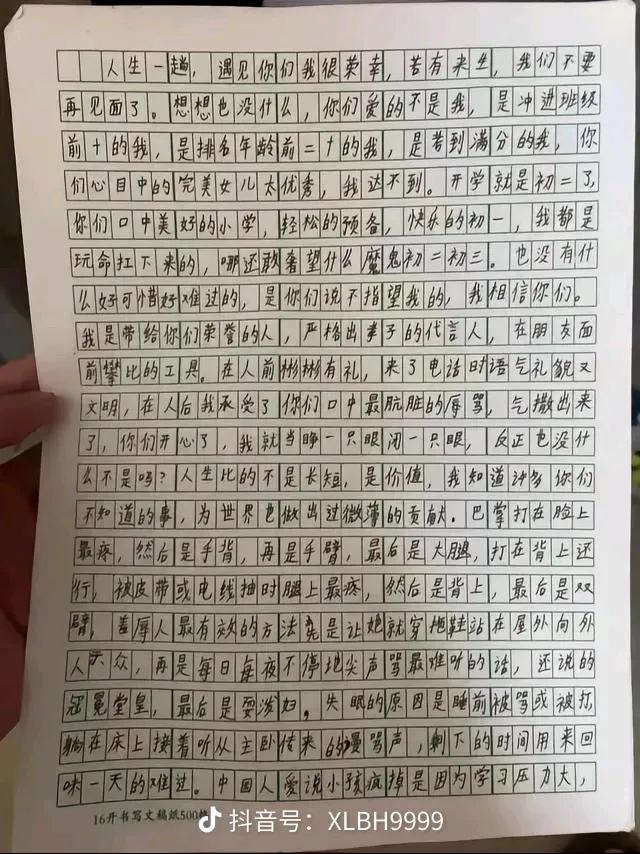 人生一趟，遇见你们我很荣幸，苦有来生，我们不要
再见面了。想想也没什么，你们爱的不是我，是冲进班级
前十的我，是排名年龄前二十的我，是考到满分的我，你
们心目中的完美女儿太优秀，我达不到。开学就是初二了，
你们口中美好的小学，轻松的预备，快乐的初一，我都是
玩命扛下来的，哪还敢奢望什么魔鬼初二初三。也没有什
么好可惜好难过的，是你们说不指望我的，我相信你们。
我是带给你们荣誉的人，严格出孝子的代言人，在朋友面
前攀比的工具。在人前彬彬有礼，来了电话时语气礼貌又
文明，在人后我承受了你们口中最肮脏的辱骂，气撒出来
了，你们开心了，我就当睁一只眼闭一只眼，反正也没什
么不是吗？人生比的不是长短，是价值，我知道许多你们
不知道的事，为世界也做出过微薄的贡献。巴掌打在脸上
最疼，然后是手背，再是手臂，最后是大腿，打在背上还
行，被皮带或电线抽时腿上最疼，然后是背上，最后是双
臂，羞辱人最有效的方法先是让她就穿拖鞋站在屋外向外
人示众，再是每日每夜不停地尖声骂最难听的话，还说的
冠冕堂皇，最后是耍泼妇。失眠的原因是睡前被骂或被打，
躺在床上接着听从主卧传来的谩骂声，剩下的时间用来回
味一天的难过。中国人爱说小孩疯掉是因为学习压力大，
16开书写文稿纸500格
抖音号：XLBH9999